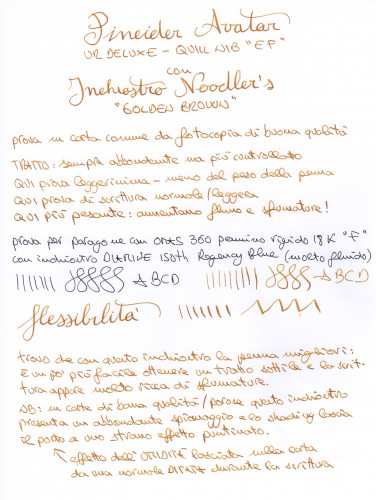 Pineider Avatar
UR DELUXE - QUILL NIB "EF"
con
Inchiostro Noodler's
"GOLDEN BROWN"
prova su carta comune da fotocopia di buona qualità
TRATTO: sempre abbondante ma più controllato
QUI prova leggerissima - meno del peso della penna
QUI prova di scrittura normale/leggera
QUI più pesante: aumentano flusso e sfumature!
prova per paragone con OMAS 360 pennino rigido 18K "F"
con inchiostro DIAMINE 150th Regency Blue (molto fluido)
ABCD ABCD
flessibilità
trovo che con questo inchiostro la penna migliori:
È un po' più facile ottenere un tratto sottile e la scrit-
tura appare molto ricca di sfumature.
NB: su carte di buona qualità/porose questo inchiostro
presenta un abbondante spiumaggio e lo shading lascia
il posto a uno strano effetto puntinato.
effetto dell'UMIDITÀ lasciata sulla carta
da una normale durante la scrittura